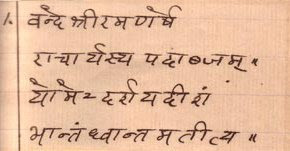 १. वन्दे श्रीरमणर्षे
राचार्यस्य पदाब्जम् ॥
यो मेऽदर्शयदीशं
भान्तं ध्वान्तमतीत्य ॥